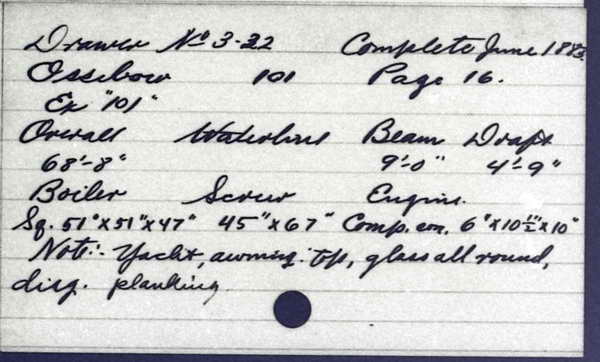 Drawer No 3-32 Complete June 1883.
Ossebow 101 Page 16.
Ex "101"
Overall Waterline Beam Draft
68'-8" 9'-0" 4'-9"
Boiler Screw Engine.
Sq. 51"x51"x47" 45"x67" Comp. con. 6"x10½"x10"
Note:- Yacht, awning top, glass all round,
diag. planking